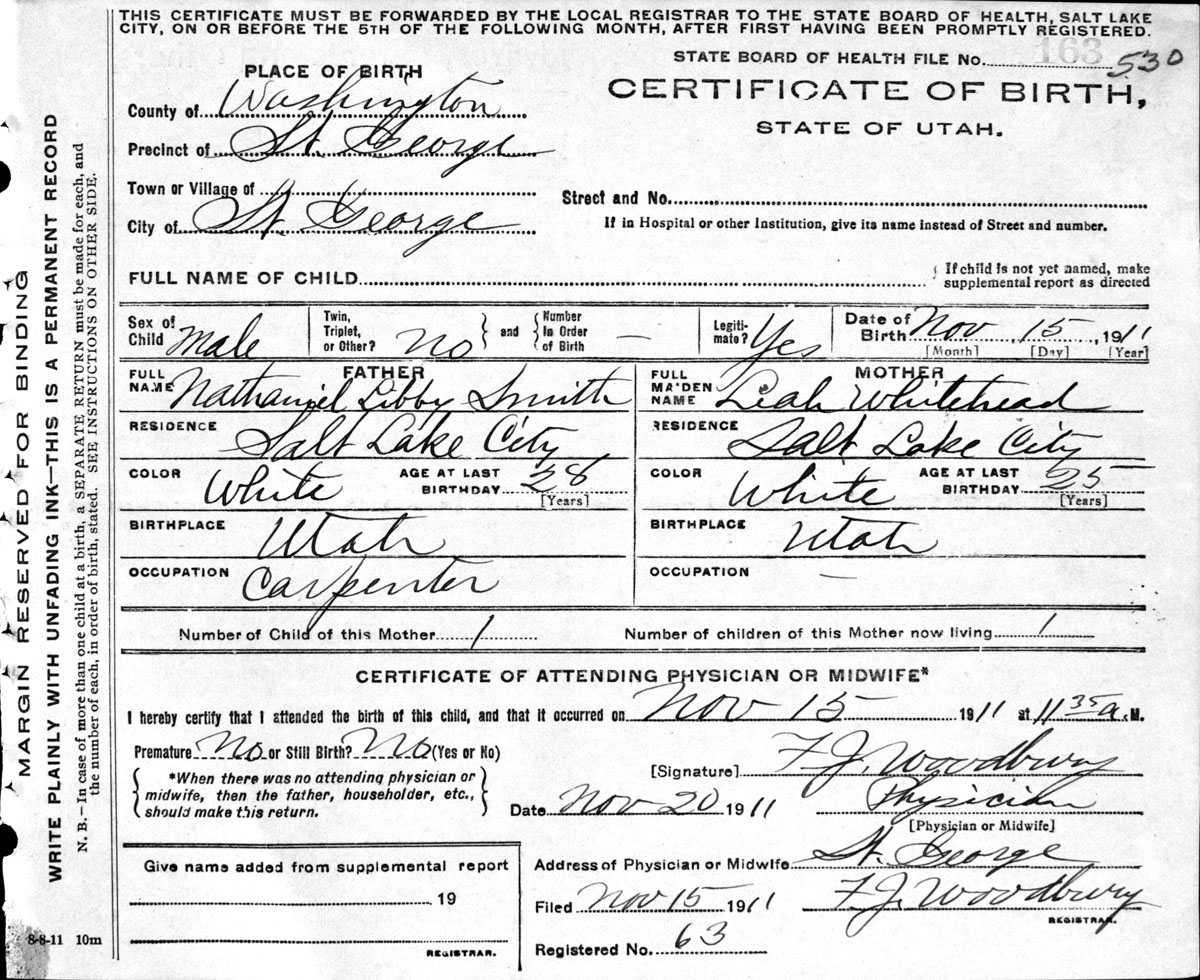 THIS CERTIFICATE MUST BE FORWARDED BY THE LOCAL REGISTRAR TO THE STATE BOARD OF HEALTH, SALT LAKE
CITY, ON OR BEFORE THE 5TH OF THE FOLLOWING MONTH, AFTER FIRST HAVING BEEN PROMPTLY REGISTERED.
STATE BOARD OF HEALTH FILE No. 163 530
PLACE OF BIRTH
CERTIFICATE OF BIRTH,
STATE OF UTAH.
County of Washington
Precinct of St. George
Town or Village of
Street and No.
City of St. George
If in Hospital or other Institution, give its name instead of Street and number.
FULL NAME OF CHILD
If child is not yet named, make
supplemental report as directed
Sex of Child Male
Twin, Triplet, or Other? No
and Number In Order of Birth —
Legiti- mate? Yes
Date of Birth Nov 15, 1911
[Month] [Day] [Year]
FATHER
FULL NAME Nathaniel Libby Smith
RESIDENCE Salt Lake City
COLOR White AGE AT LAST BIRTHDAY 28
[Years]
BIRTHPLACE Utah
OCCUPATION Carpenter
MOTHER
FULL MAIDEN NAME Leah Whitehead
RESIDENCE Salt Lake City
COLOR White AGE AT LAST BIRTHDAY 25
[Years]
BIRTHPLACE Utah
OCCUPATION —
Number of Child of this Mother 1 Number of children of this Mother now living 1
CERTIFICATE OF ATTENDING PHYSICIAN OR MIDWIFE*
I hereby certify that I attended the birth of this child, and that it occurred on Nov 15 1911 at 11 35 a. M.
Premature No or Still Birth? No (Yes or No)
*When there was no attending physician or
midwife, then the father, householder, etc.,
should make this return.
[Signature] F. J. Woodbury
Date Nov 20 1911 Physician
[Physician or Midwife]
Address of Physician or Midwife St. George
Filed Nov 15 1911 F. J. Woodbury
REGISTRAR.
Registered No. 63
Give name added from supplemental report
19
REGISTRAR.
8-8-11 10m
MARGIN RESERVED FOR BINDING
WRITE PLAINLY WITH UNFADING INK—THIS IS A PERMANENT RECORD
N. B.—In case of more than one child at a birth, a SEPARATE RETURN must be made for each, and
the number of each, in order of birth, stated. SEE INSTRUCTIONS ON OTHER SIDE.